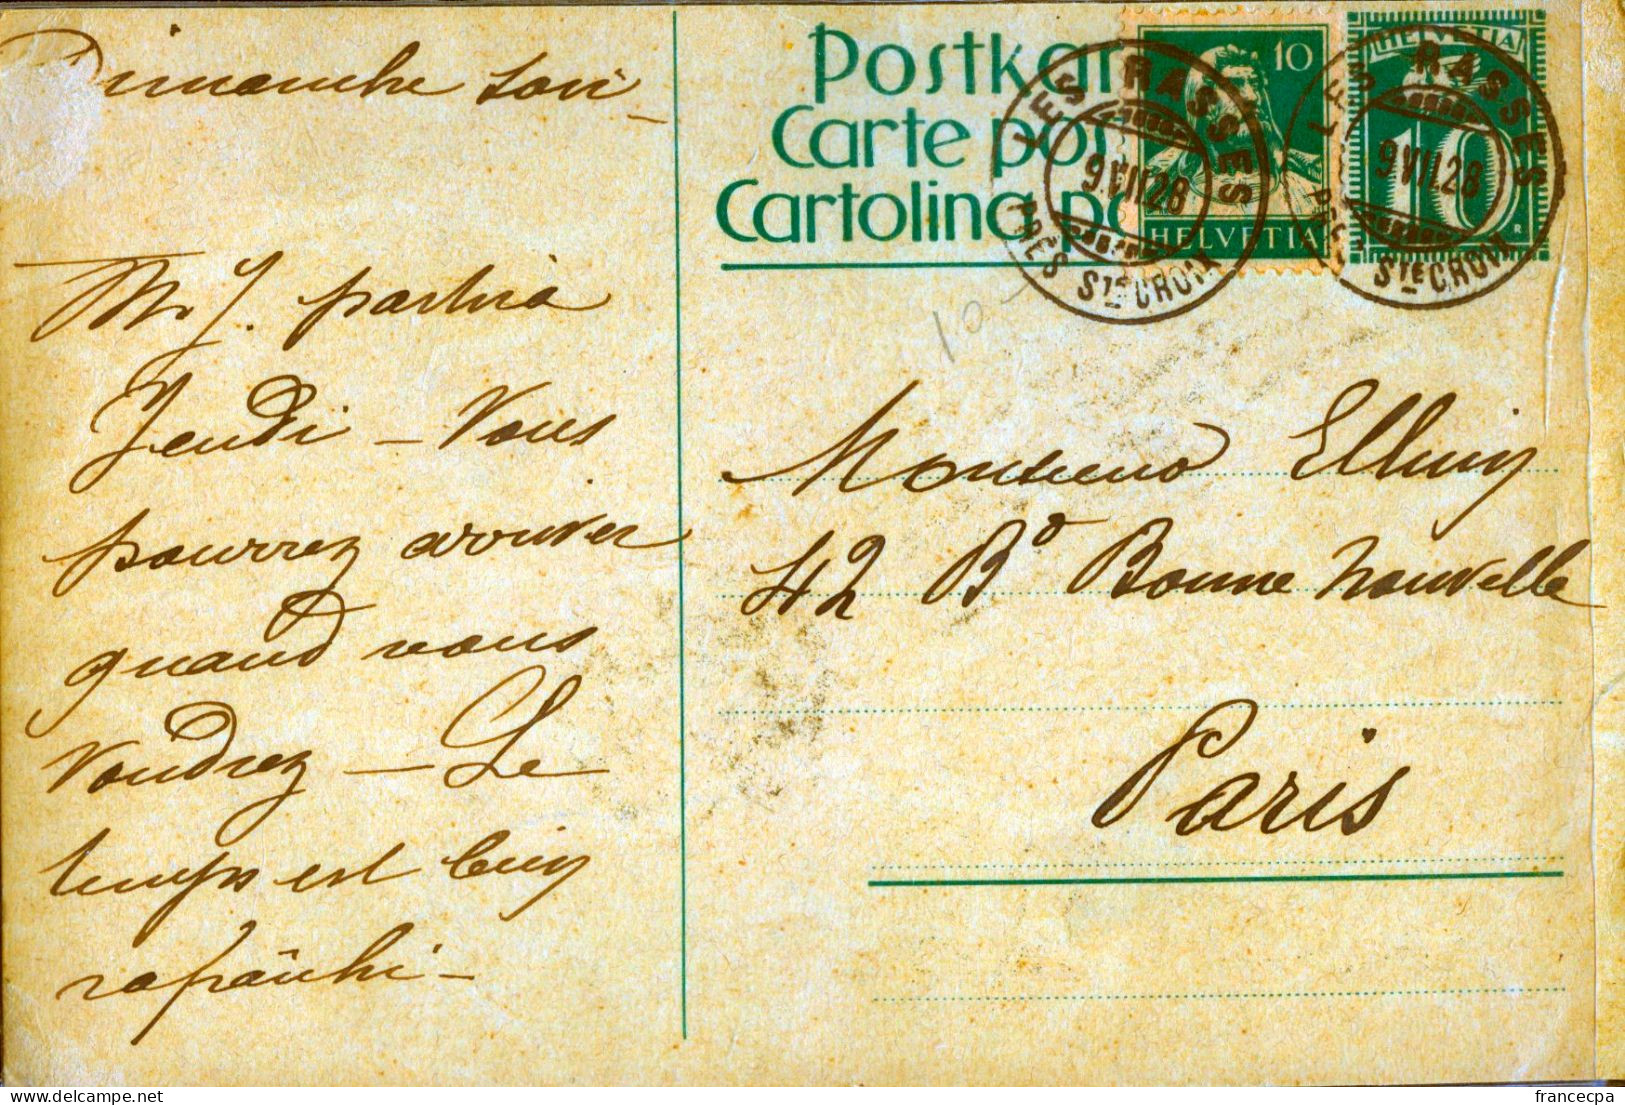 Dimanche soir
Mr J. partira
Jeudi - Vous
pourrez arriver
quand vous
voudrez - Le
temps est bien
rafraîchi -
Postkar
Carte pos
Cartolina po
10
HELVETIA
HELVETIA
10
LES RASSES
9.VII.28
PRÈS STE CROIX
LES RASSES
9.VII.28
PRÈS STE CROIX
10-
Monsieur
42 Bd Bonne Nouvelle
Paris
www.delcampe.net
francecpa